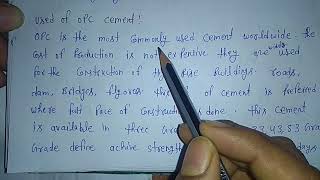 Used of OPC Cement!
OPC is the most Commonly used Cement worldwide. the
Cost of Production is not expentive they are used
for the Construction of Rise Buildings. roads,
dam, Bridges, flyover. of Cement is preferred
where fast Pace of Construction is done. this Cement
is available in three 33, 43, 53 Grad
Grade define achive strength days